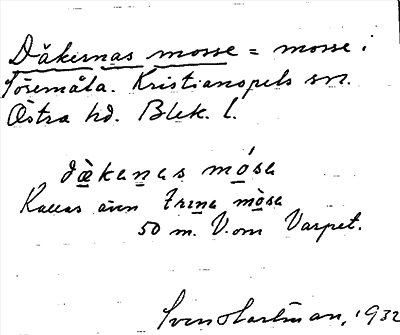 Däkernas mosse = mosse i
Töremåla. Kristianopels sn.
Östra hd. Blek. l.
dä̀kanas mósa
Kallas även trɪna mòsa
50 m. V. om Varpet.
Sven Hartman, 1932